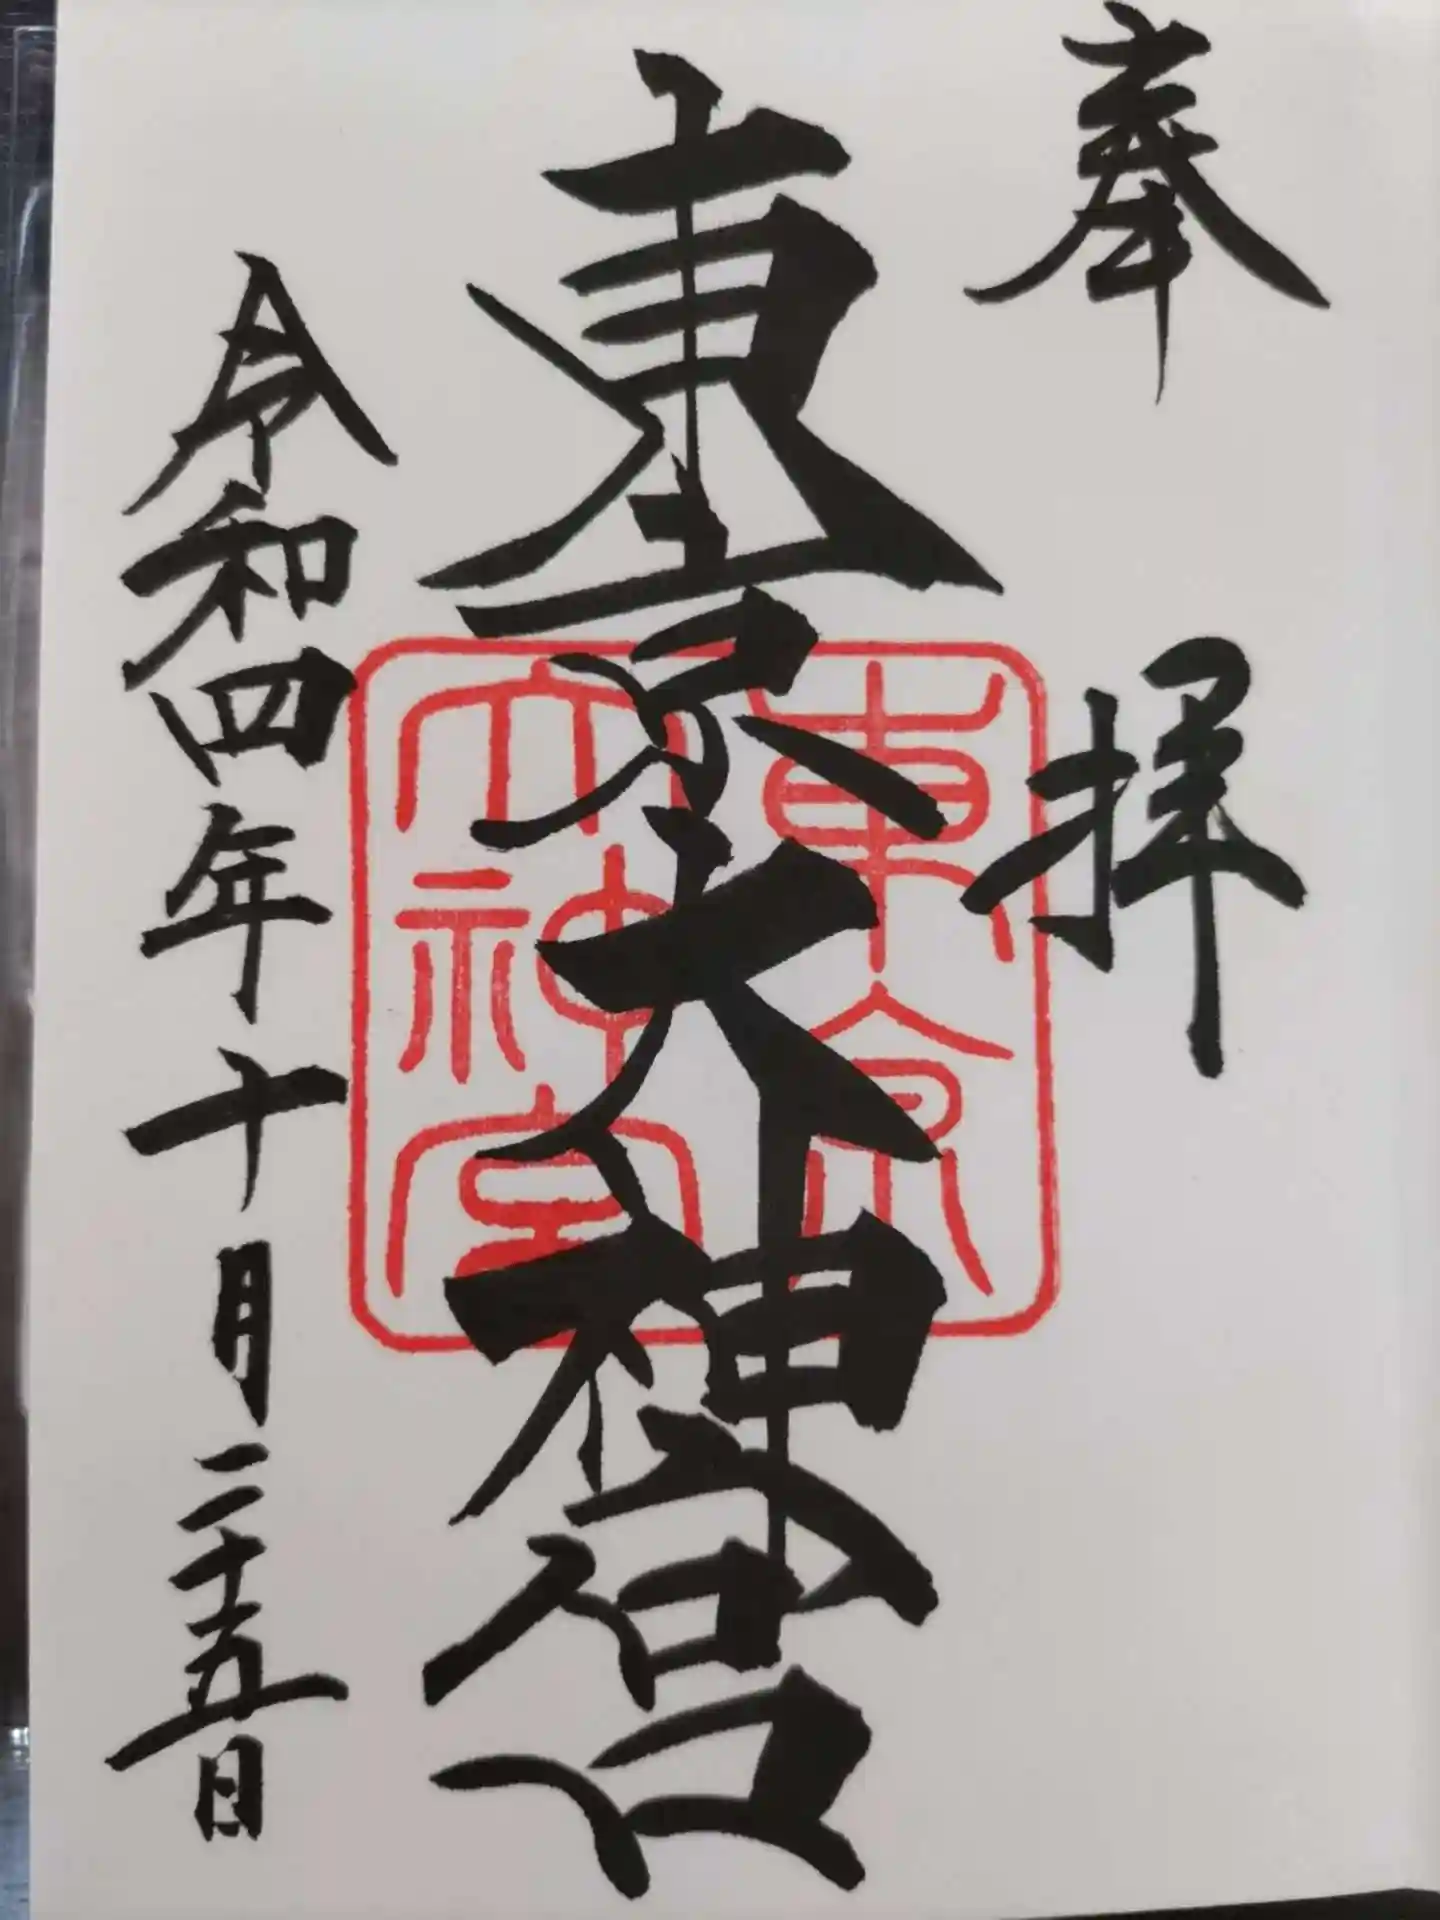 奉拝
東京大神宮
東京
大神宮
令和四年十月二十五日